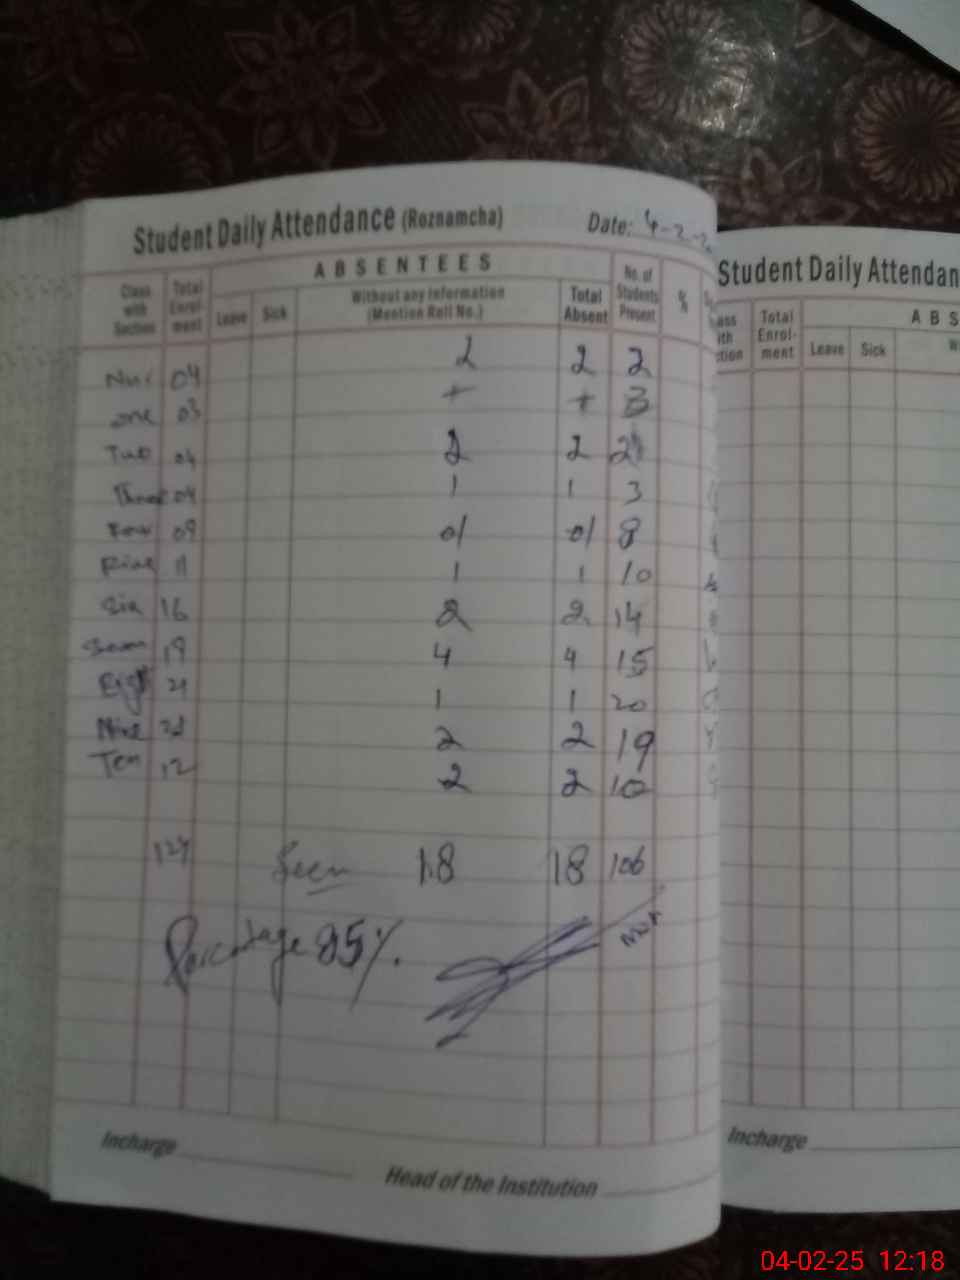 Student Daily Attendance (Roznamcha) Date: 4-2-2
Class with Section Total Enrol-ment ABSENTEES No. of Students Present %
Leave Sick Without any Information (Mention Roll No.) Total Absent
Nur 04 2 2 2
one 03 + + 3
Two 04 2 2 2
Three 04 1 1 3
Four 09 01 01 8
Five 11 1 1 10
Six 16 2 2 14
Seven 19 4 4 15
Eight 21 1 1 20
Nine 21 2 2 19
Ten 12 2 2 10
124 Seen 18 18 106
Percentage 85%.
Incharge
Head of the Institution
Student Daily Attendan
ass ith ction Total Enrol-ment ABS
Leave Sick W
Incharge
04-02-25 12:18